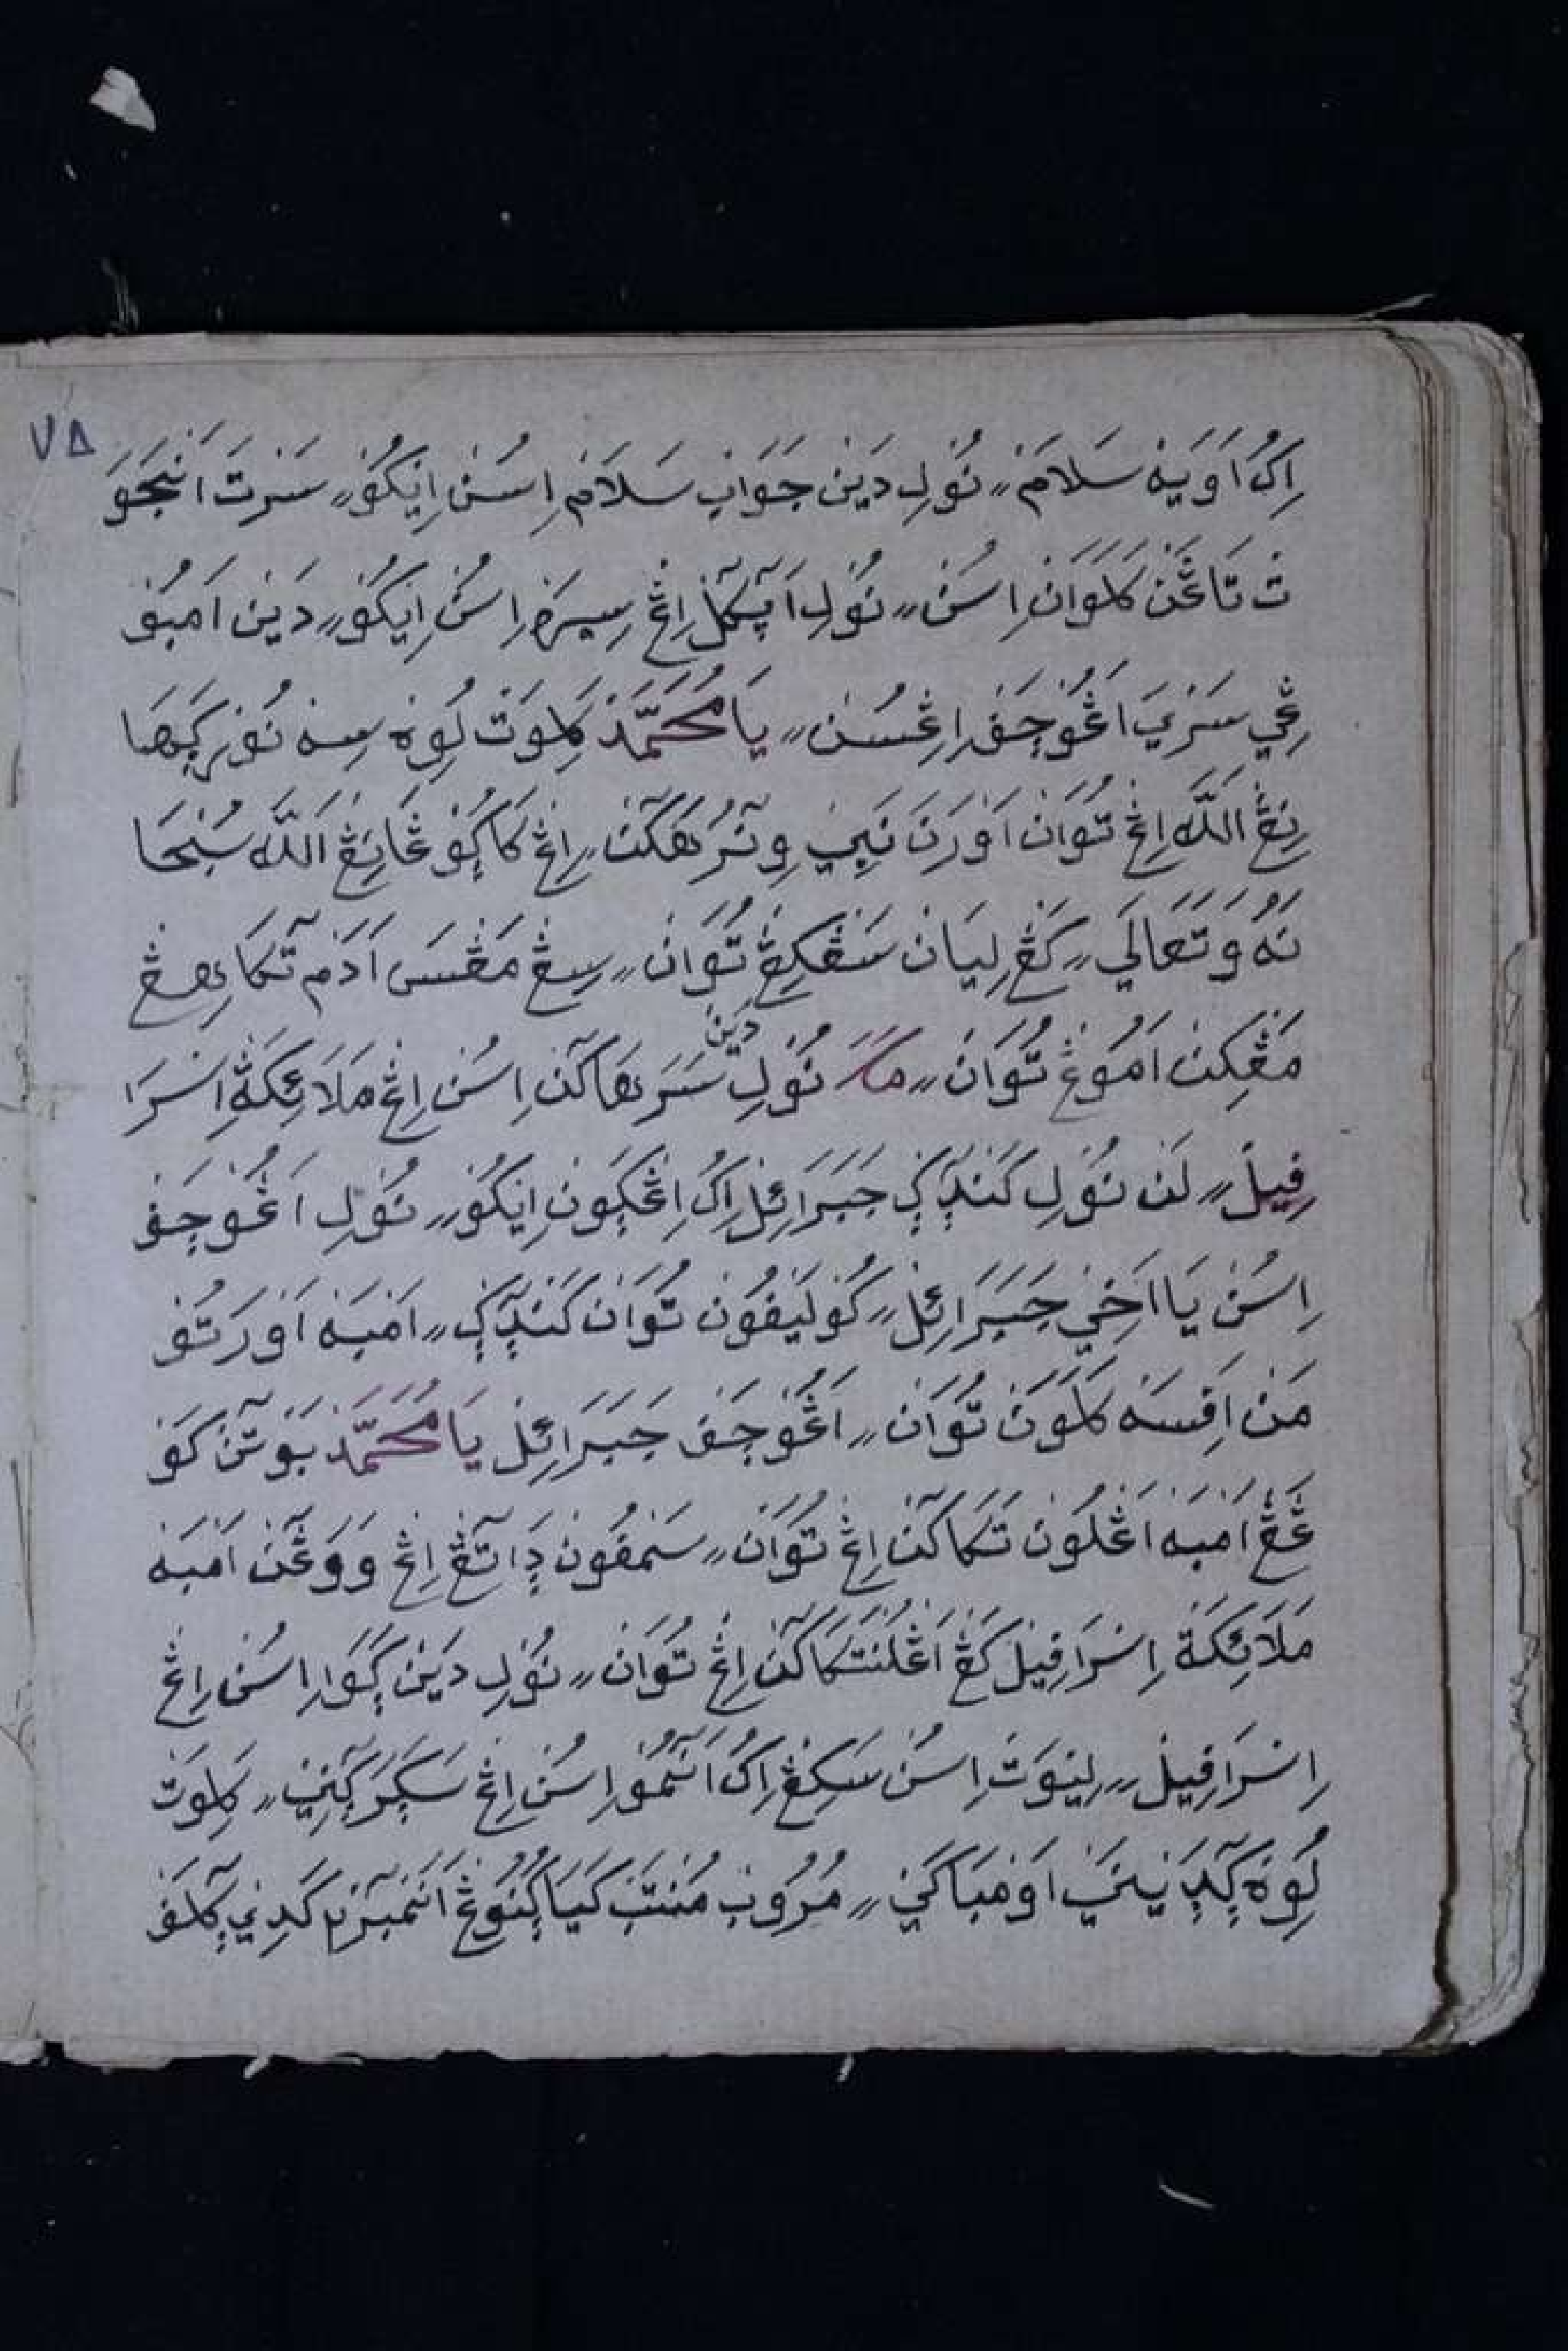 ٧٨
اِكُ اَوَيَهْ سَلَامَ، نُوْلِ دَيَنْ جَوَابْ سَلَامْ اِسُنْ اِيْكُوْ، سَرْتَ اَنْجَوَ
تْ تَاڠَنْ كَلَوَانْ اِسُنْ، نُوْلِ اِڠْ سِيْرَهْ اِسُنْ اِيْكُوْ، دَيَنْ اَمْبُوْ
ڠِيْ سَرْيَ اَڠُوْجَفْ اِڠْسُنْ، يَا مُحَمَّدْ كِلِوَتْ لُوِهْ سِهْ نُوْݢْرَهَا
نِڠْ اَللّٰهْ اِڠْ تُوَانْ اَوْرَنَ نَبِيْ وِنٓرُهَكٓنْ، اِڠْ كَاݢُوْڠَانِڠْ اَللّٰهْ سُبْحَا
نَهُ وَتَعَالَى، كَڠْ لِيَانْ سَڠْكِڠْ تُوَانْ، سِڠْ مَڠْسَ اَدَمْ تٓكَا نِڠْ
مَڠْكِنْ اَمُوْڠْ تُوَانْ، مَكَ نُوْلِ دَيَنْ سَرَهَاكٓنْ اِسُنْ اِڠْ مَلَائِكَةْ اِسْرَا
فِيْلْ، لَنْ نُوْلِ كَنْدٓݢْ جَبَرَائِلْ اِكُ اِڠْݢَوْنْ اِيْكُوْ، نُوْلِ اَڠُوْجَفْ
اِسُنْ يَا اَخِيْ جَبَرَائِلْ، كُوْلَيْفُوْنْ تُوَانْ كَنْدٓݢْ، اَمْبَهْ اَوْرَ تُوْ
مَنْ اَفِسَهْ كَلَوَنْ تُوَانْ، اَڠُوْجَفْ جَبَرَائِلْ يَا مُحَمَّدْ بَوْتٓنْ كَوْ
ڠَڠْ اَمْبَهْ اَڠْلَوْنْ تَكَاكٓنْ اِڠْ تُوَانْ، سَمْفُوْنْ دَاتٓڠْ اِڠْ وَوَڠٓنْ اَمْبَهْ
مَلَائِكَةْ اِسْرَافِيْلْ كَڠْ اَڠْلُنْتَكَاكٓنْ اِڠْ تُوَانْ، نُوْلِ دَيَنْ ݢَوَا اِسُنْ اِڠْ
اِسْرَافِيْلْ، لِيْوَتْ اِسُنْ سَكِڠْ اِكُ اِسُنْ اِڠْ سَݢَرَ ݢٓنِيْ، كِلِوَتْ
لُوِهْ ݢٓدَيْنَيْ اَوْمْبَاكَيْ، مُرُوْبْ مُنْتَبْ كَيَا ݢُنُوْڠْ كَدِيْ